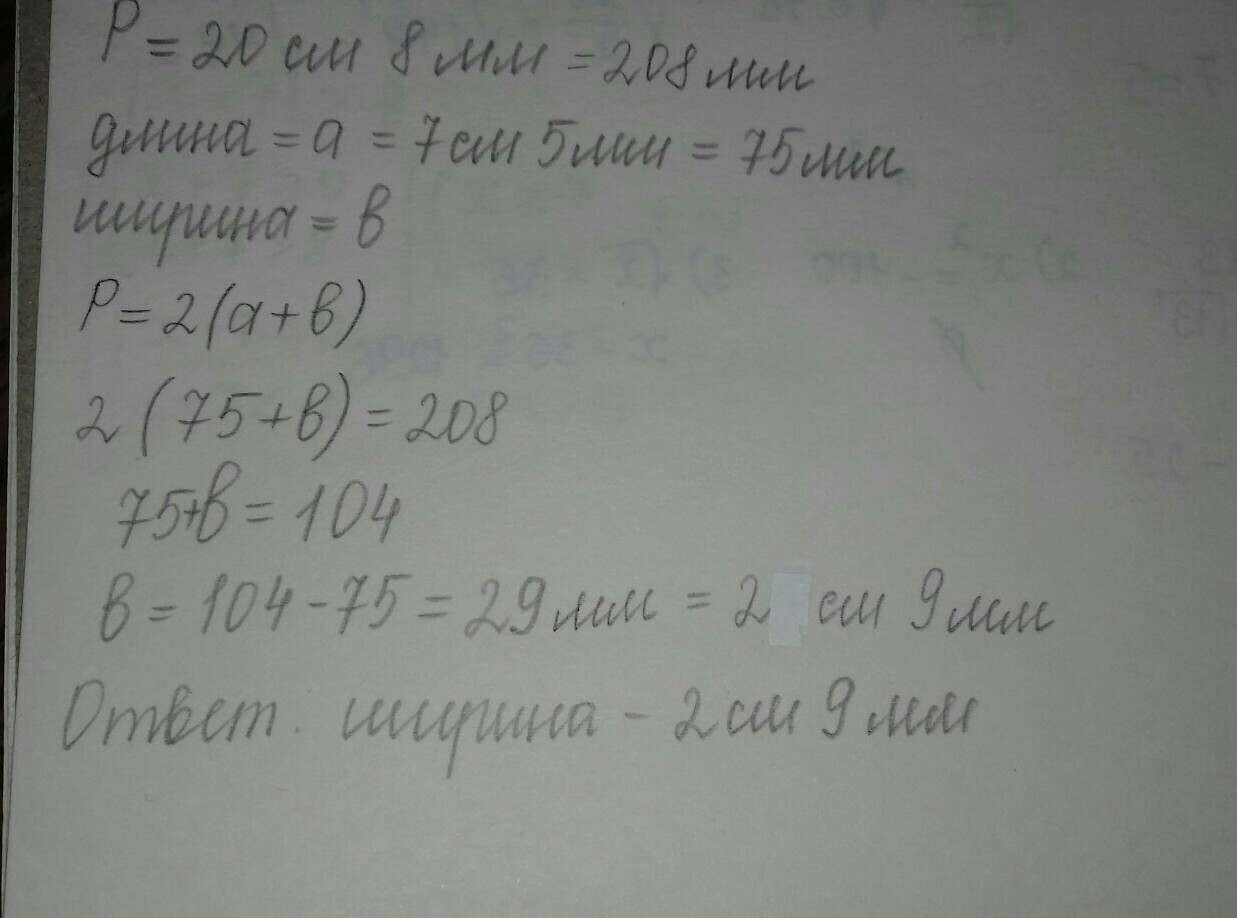 P = 20 см 8 мм = 208 мм
длина = a = 7 см 5 мм = 75 мм
ширина = в
P = 2(a + в)
2 (75 + в) = 208
75 + в = 104
в = 104 - 75 = 29 мм = 2 см 9 мм
Ответ: ширина - 2 см 9 мм